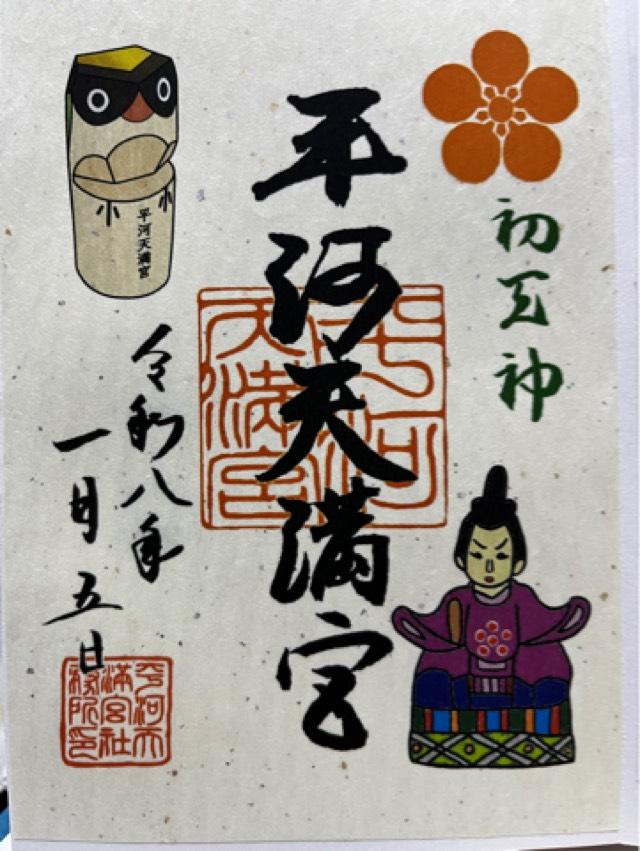 初天神
平河天満宮
平河天満宮
平河天満宮
令和八年
一月五日
平河天
満宮社
務所印